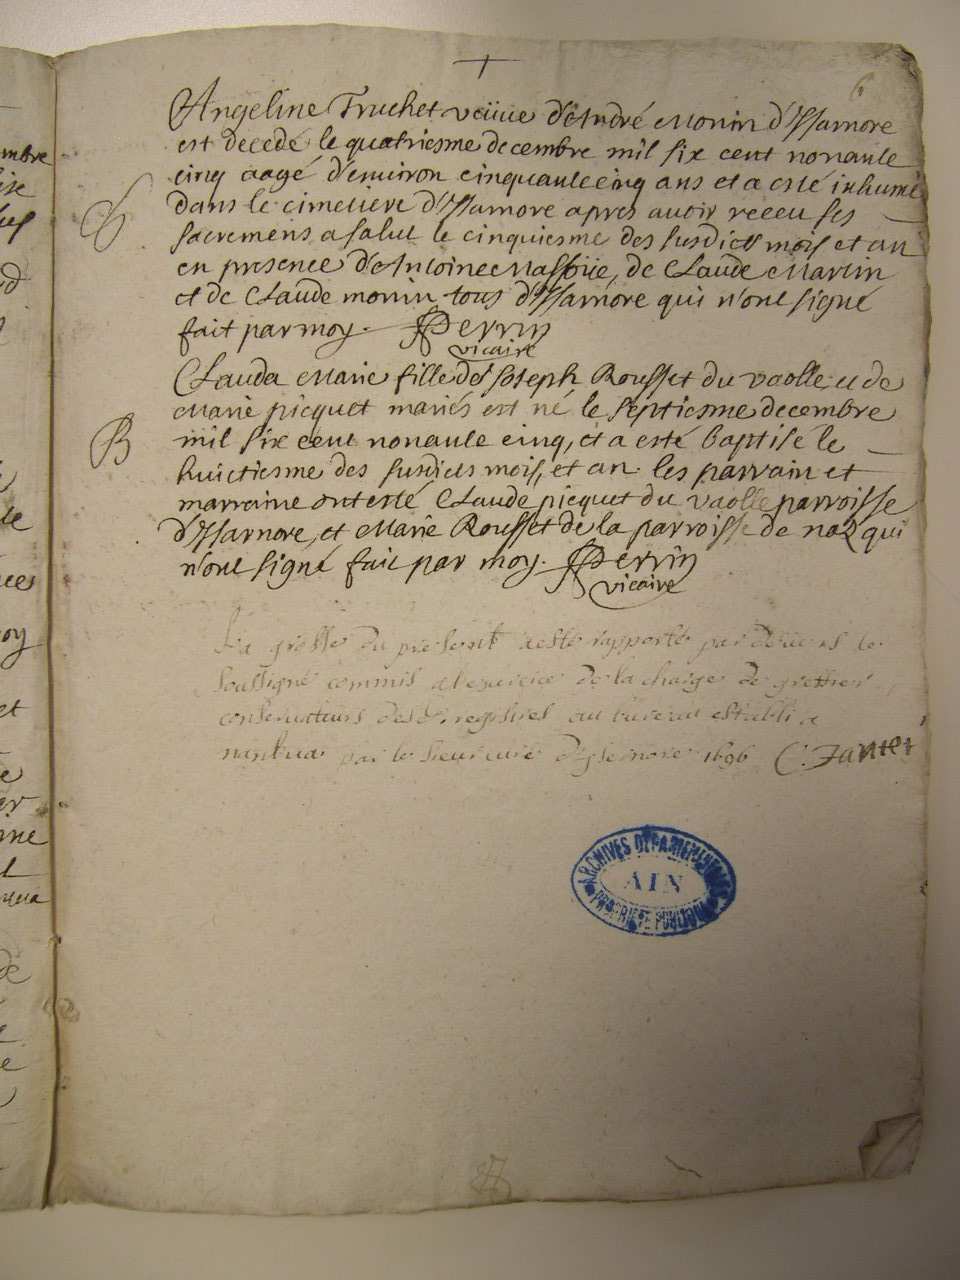 6
Angeline Truchet veüve d'André Monin d'Yssarnore
est decedé le quatriesme decembre mil six cent nonante
cinq aagé d'environ cinquante cinq ans et a esté inhumé
S
dans le cimetiere d'Yssarnore apres avoir receu ses
sacremens a salut le cinquiesme des susdicts mois et an
en presence d'Antoine Massüe, de Claude Martin
et de Claude monin tous d'Yssarnore qui n'ont signé
fait par moy. Perrin
vicaire
Clauda Marie fille de Joseph Rousset du vaolle et de
Marie picquet mariés est né le septiesme decembre
B
mil six cent nonante cinq, et a esté baptisé le
huictiesme des susdicts mois, et an. les parrain et
marraine ont esté Claude picquet du vaolle parroisse
d'Yssarnore, et Marie Rousset de la parroisse de naz qui
n'ont signé fait par moy. Perrin
vicaire
La grosse du present a esté rapporté par devers le
soussigné commis a l'exercice de la charge de greffier
conservateurs desd. registres au bureau establi a
nantua par le sieur curé d'Issernore 1696 C. Jantet
ARCHIVES DEPARTEMENTALES
AIN
PROPRIETE PUBLIQUE